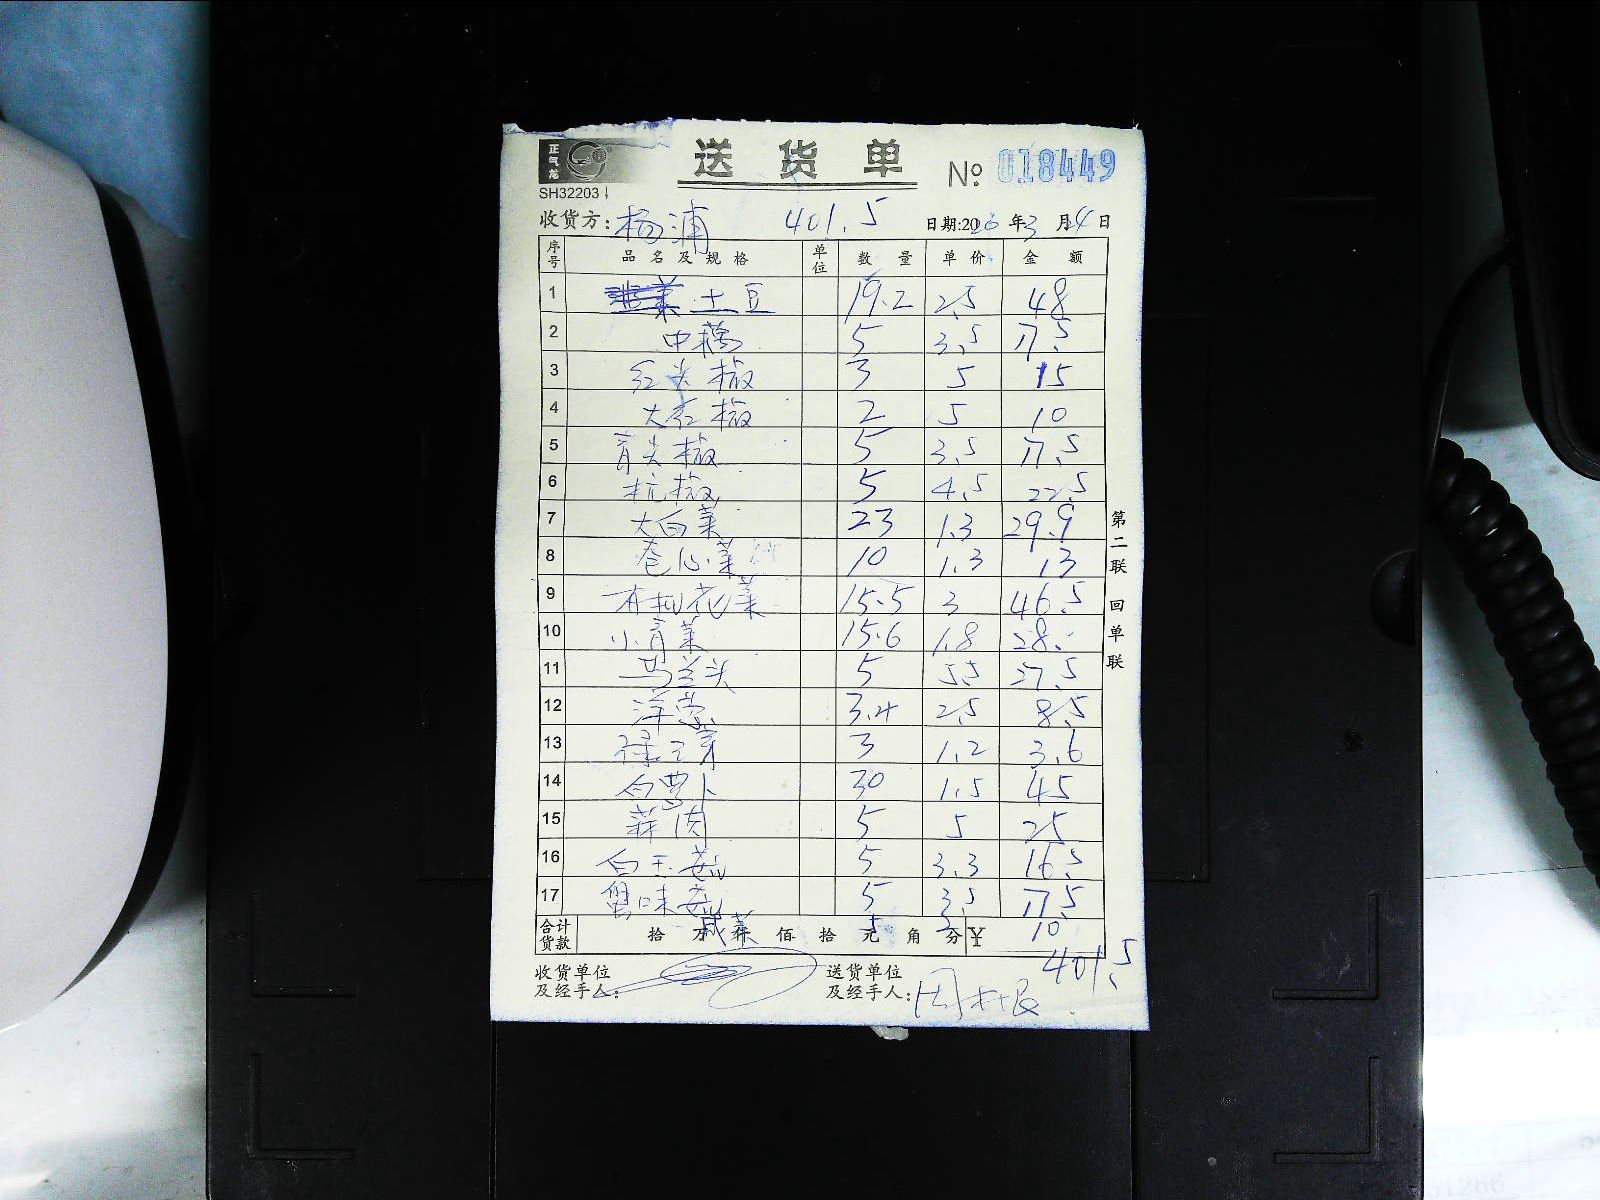 正气龙
送 货 单
№ 018449
SH32203
收货方: 杨浦 401.5 日期:20 年3月4日
序号 品名及规格 单位 数量 单价 金额
1 土豆 19.2 2.5 48
2 中 5 3.5 17.5
3 红尖椒 3 5 15
4 大红椒 2 5 10
5 青尖椒 5 3.5 17.5
6 杭椒 5 4.5 22.5
7 大白菜 23 1.3 29.9
8 卷心菜 10 1.3 13
9 有机花菜 15.5 3 46.5
10 小青菜 15.6 1.8 28.
11 马兰头 5 5.5 27.5
12 洋葱 3.4 2.5 8.5
13 绿豆芽 3 1.2 3.6
14 白萝卜 30 1.5 45
15 蒜肉 5 5 25
16 白玉菇 5 3.3 16.5
17 蟹味菇 5 3.5 17.5
咸菜 10
合计货款 拾 万 仟 佰 拾 元 角 分 ¥ 401.5
收货单位及经手人: 送货单位及经手人: 周根
第二联 回单联